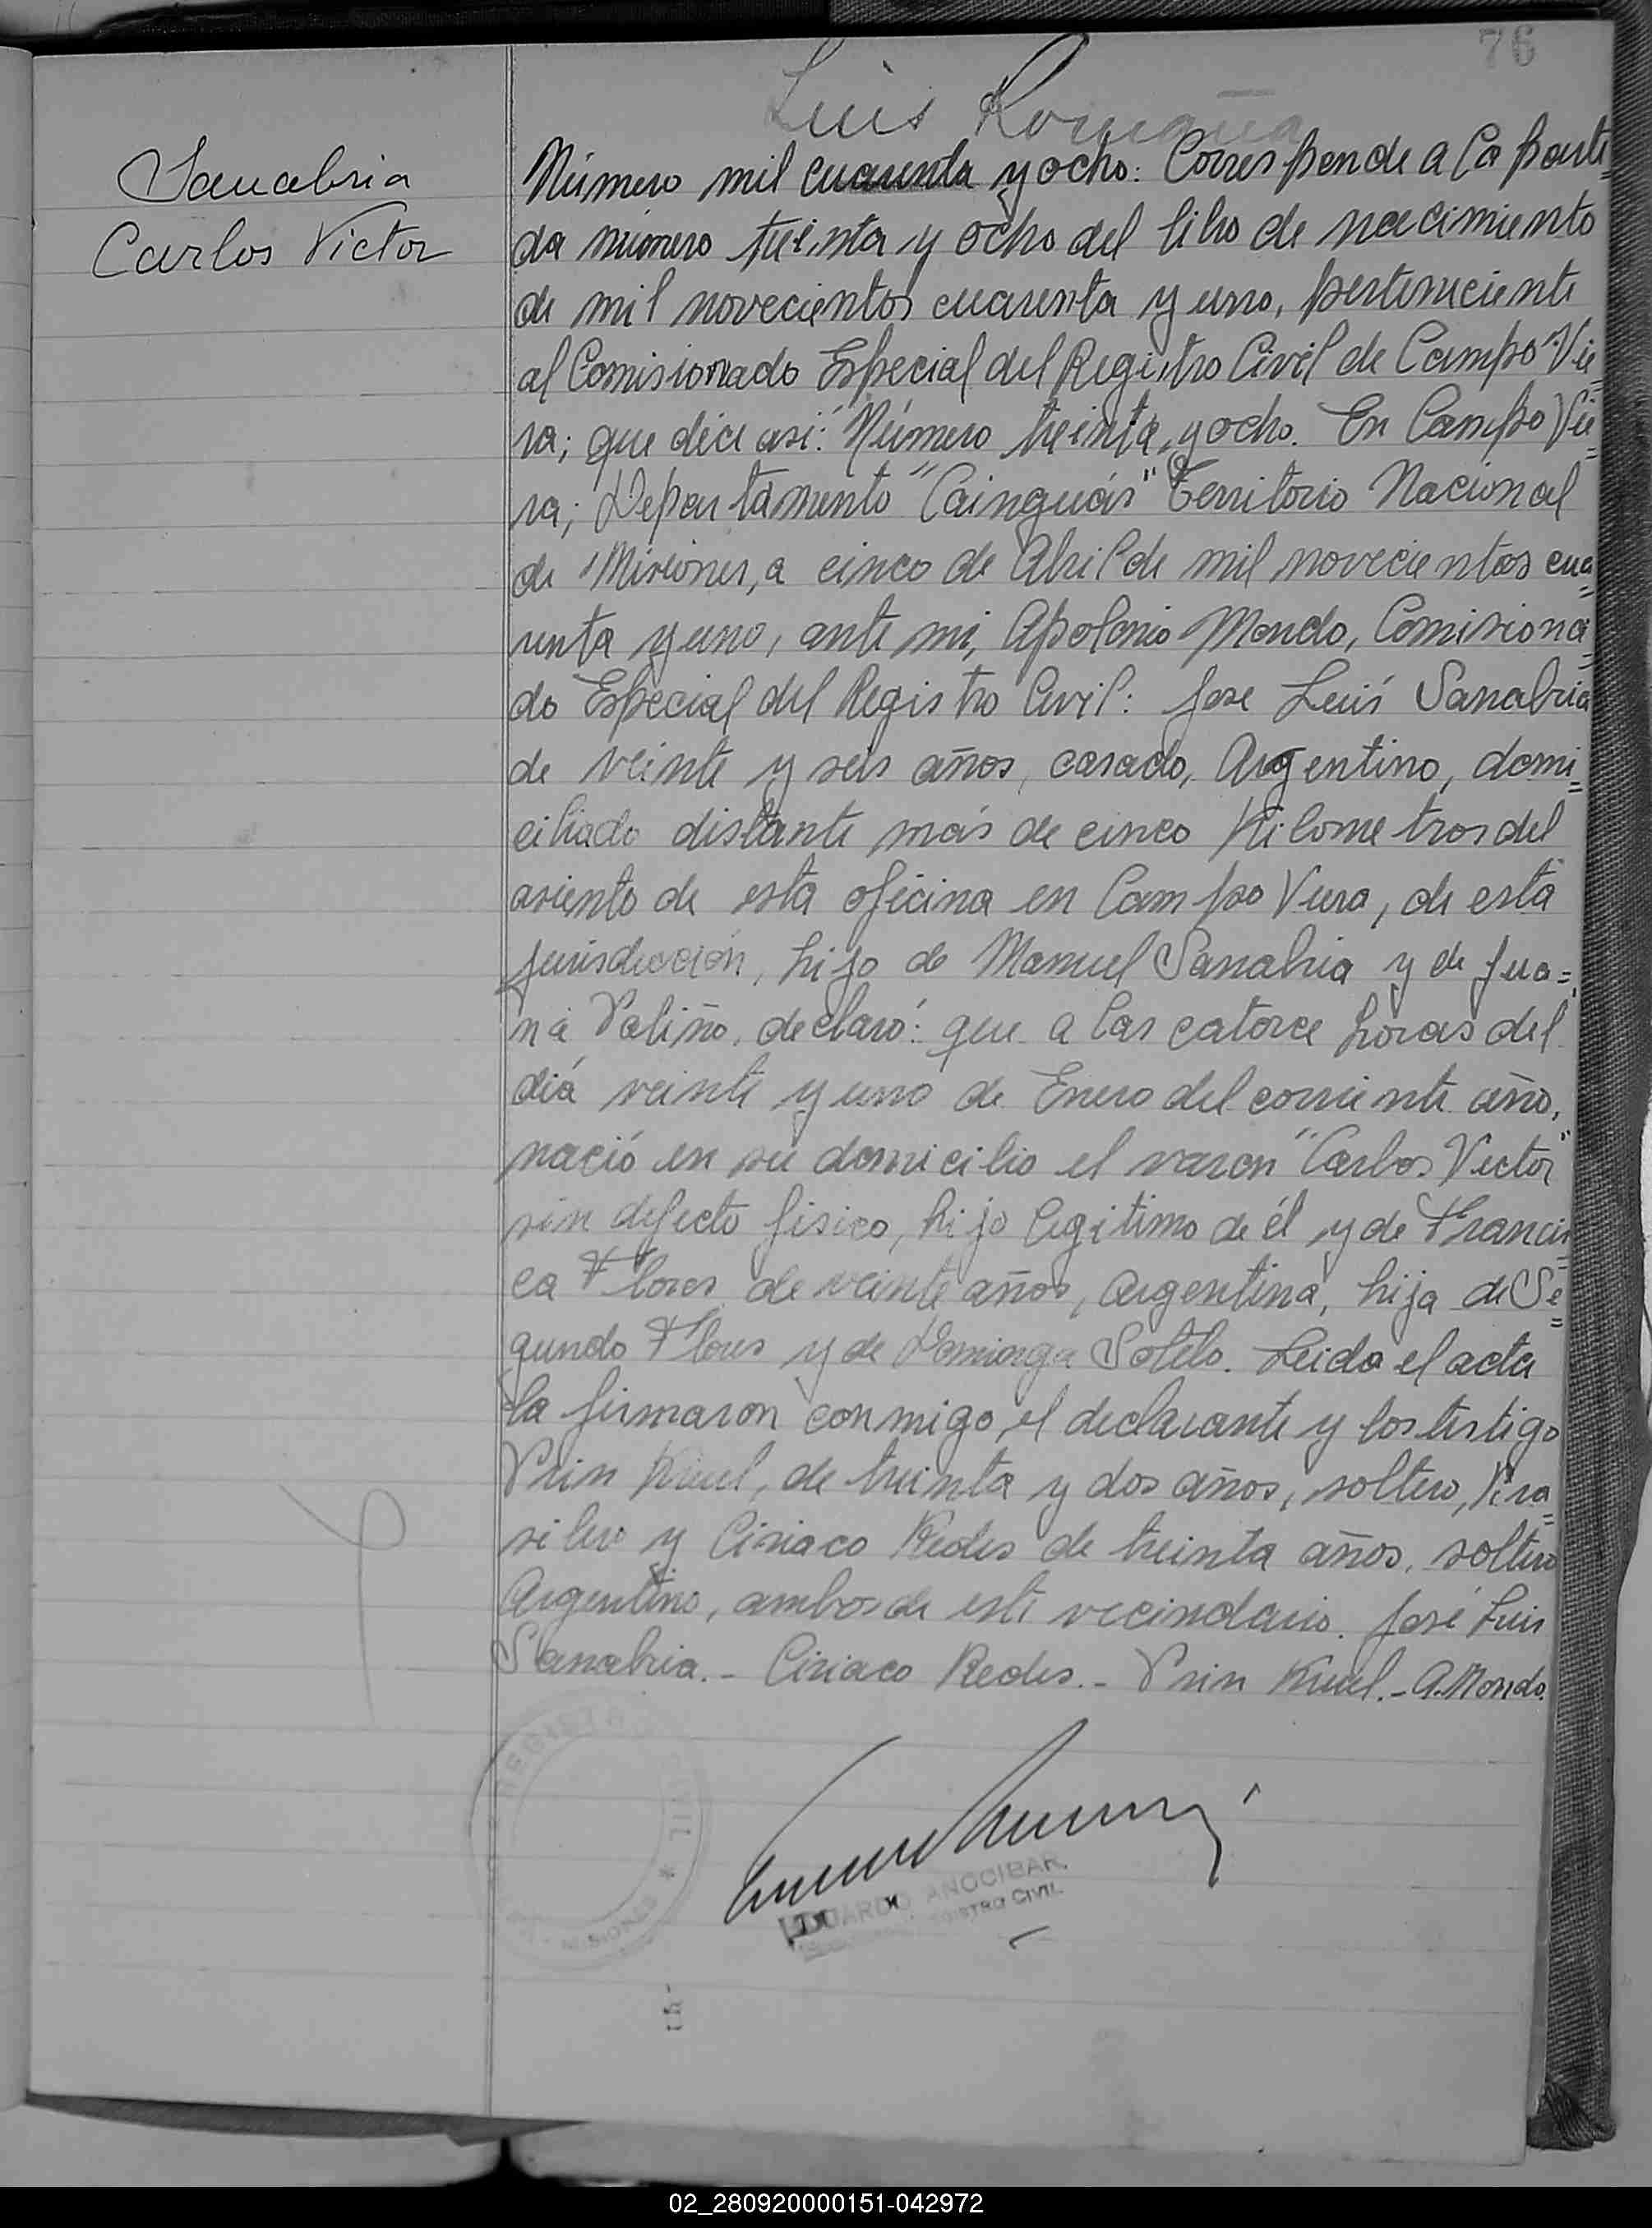 76
Luis Romaña
Sanabria
Carlos Victor
Número mil cuarenta y ocho: Corresponde a la parti=
da número treinta y ocho del libro de nacimiento
de mil novecientos cuarenta y uno, perteneciente
al Comisionado Especial del Registro Civil de Campo Vie=
ra; que dice asi: Número treinta y ocho. En Campo Vie=
ra; Departamento "Cainguás" Territorio Nacional
de Misiones, a cinco de Abril de mil novecientos cua=
renta y uno, ante mi, Apolonio Mondo, Comisiona=
do Especial del Registro Civil: Jose Luis Sanabria
de veinte y seis años, casado, Argentino, domi=
ciliado distante más de cinco Kilometros del
asiento de esta oficina en Campo Viera, de esta
jurisdicción, hijo de Manuel Sanabria y de Jua=
na Valiño, declaró: que a las catorce horas del
diá veinte y uno de Enero del corriente año,
nació en su domicilio el varon "Carlos Victor"
sin defecto fisico, hijo legitimo de él y de Francis=
ca Flores de veinte años, argentina, hija de Se=
gundo Flores y de Dominga Sotelo. Leida el acta
la firmaron conmigo, el declarante y los testigo
de treinta y dos años, soltero, Bra=
silero y Ciriaco Redes de treinta años, soltero
Argentino, ambos de este vecindario. José Luis
Sanabria.- Ciriaco Redes.- A. Mondo.
REGISTRO CIVIL * MISIONES
EDUARDO ANOCIBAR
REGISTRO CIVIL
02_280920000151-042972